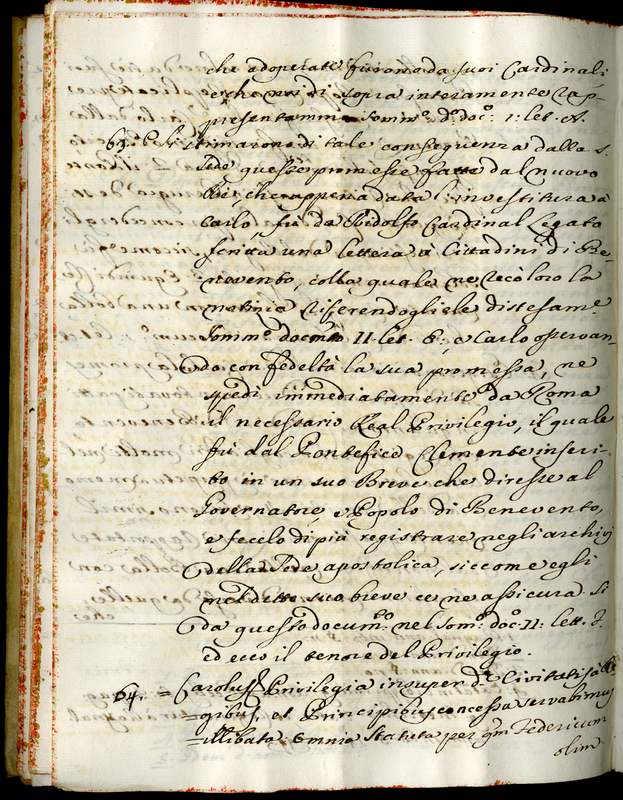 che adoperate furono da suoi Cardinali
e che noi di sopra interamente rap-
presentammo Somm.º d.º doc.º 1: let. A.
63. Stimarono di tale conseguenza dalla S.
Sede queste promesse fatte dal nuovo
Rè, che appena data l'investitura à
Carlo fù da Ridolfo Cardinal Legato
scritta una lettera à Cittadini di Be-
nevento, colla quale ne recò loro la
notizia riferendogliele distesam.e
Somm.º docum.to 11. let. E: e Carlo osservan-
do con fedeltà la sua promessa, ne
spedì immediatamente da Roma
il necessario Real Privilegio, il quale
fù dal Pontefice Clemente inseri-
to in un suo Breve che diresse al
Governatore, e Popolo di Benevento,
e fecelo di più registrare negli archivj
della Sede apostolica, siccome egli
nel detto suo breve ce ne assicura. Si
da questo docum.to nel Som.º doc.º 11: lett. F.
ed ecco il tenore del Privilegio.
64. = Carolus Privilegia insuper d.æ Civitatis à
= gibus, et Principibus concessa servabimus
= illibata: omnia statuta per q̃m Federicum
olim